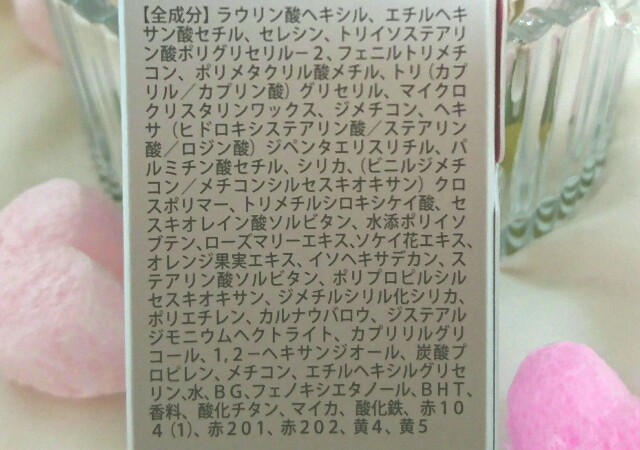 【全成分】ラウリン酸ヘキシル、エチルヘキ
サン酸セチル、セレシン、トリイソステアリ
ン酸ポリグリセリル－2、フェニルトリメチ
コン、ポリメタクリル酸メチル、トリ（カプ
リル／カプリン酸）グリセリル、マイクロ
クリスタリンワックス、ジメチコン、ヘキ
サ（ヒドロキシステアリン酸／ステアリン
酸／ロジン酸）ジペンタエリスリチル、パ
ルミチン酸セチル、シリカ、（ビニルジメチ
コン／メチコンシルセスキオキサン）クロ
スポリマー、トリメチルシロキシケイ酸、セ
スキオレイン酸ソルビタン、水添ポリイソ
ブテン、ローズマリーエキス、ソケイ花エキス、
オレンジ果実エキス、イソヘキサデカン、ス
テアリン酸ソルビタン、ポリプロピルシル
セスキオキサン、ジメチルシリル化シリカ、
ポリエチレン、カルナウバロウ、ジステアル
ジモニウムヘクトライト、カプリリルグリ
コール、1,2－ヘキサンジオール、炭酸プ
ロピレン、メチコン、エチルヘキシルグリセ
リン、水、BG、フェノキシエタノール、BHT、
香料、酸化チタン、マイカ、酸化鉄、赤10
4（1）、赤201、赤202、黄4、黄5